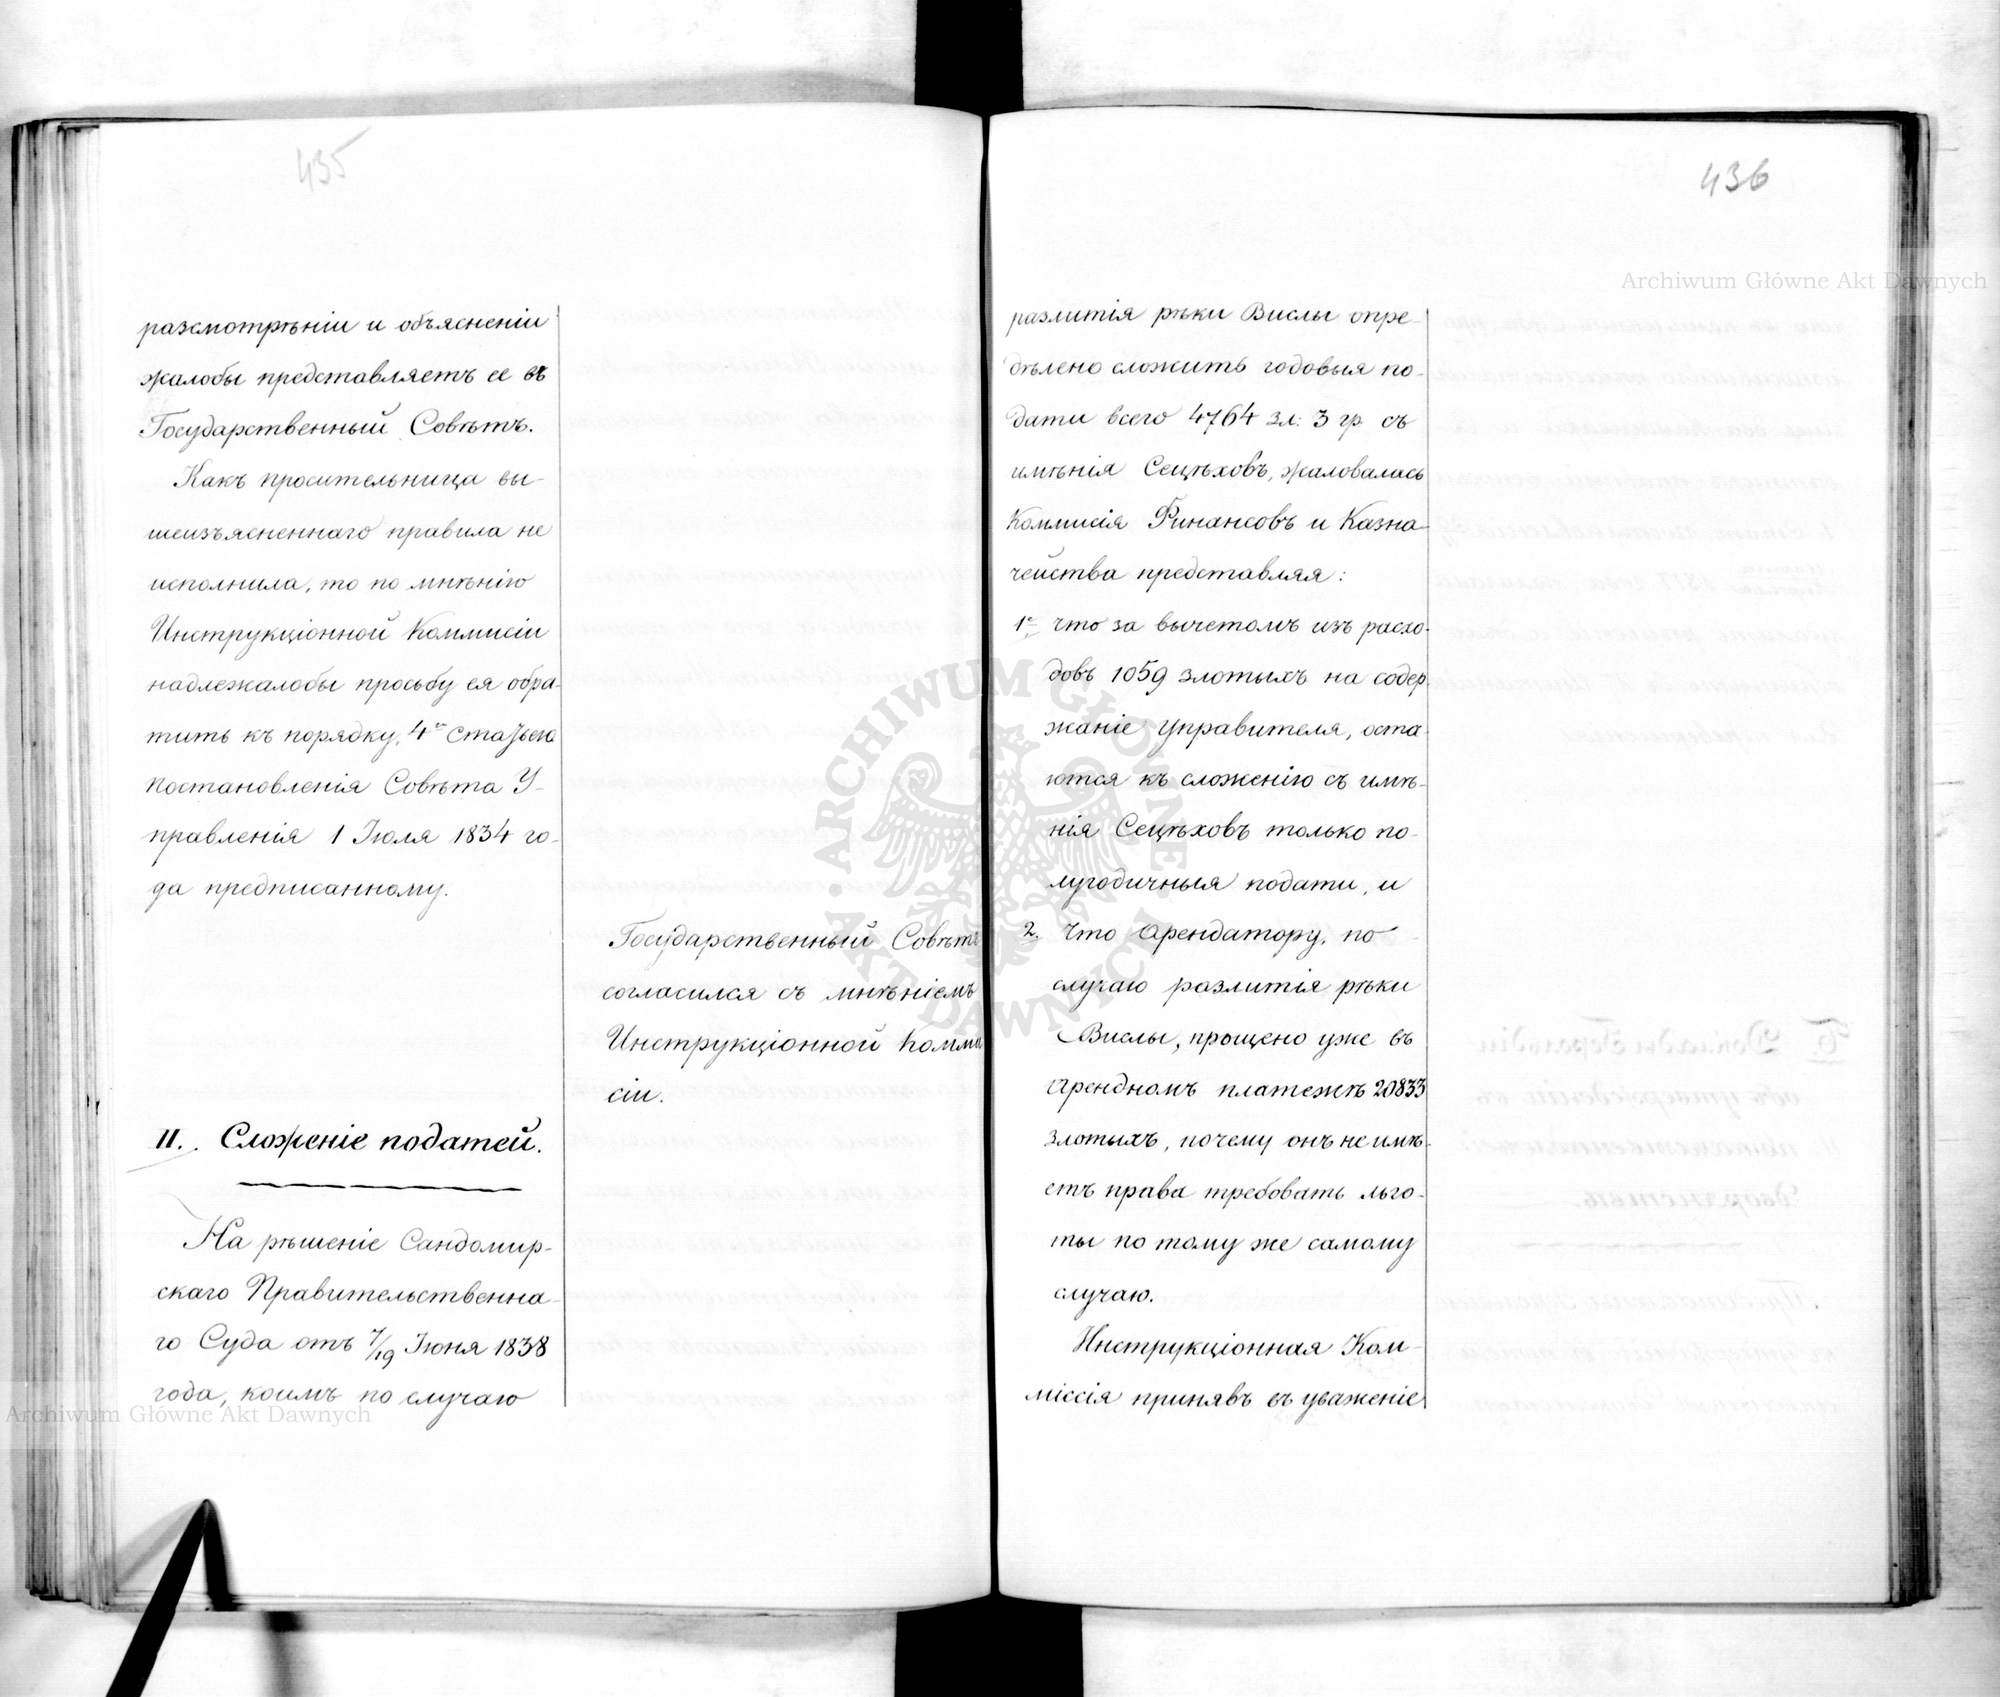 435
разсмотрѣніи и объясненіи
жалобы представляетъ ее въ
Государственный Совѣтъ.
Какъ просительница вы-
шеизъясненнаго правила не
исполнила, то по мнѣнію
Инструкціонной Коммисіи
надлежалобы просьбу ея обра-
тить къ порядку, 4ю статьею
постановленія Совѣта У-
правленія 1 Іюля 1834 го-
да предписанному.
Государственный Совѣтъ
согласился съ мнѣніемъ
Инструкціонной Комми
сіи.
II. Сложеніе податей.
На рѣшеніе Сандомир-
скаго Правительственна-
го Суда отъ 7/19 Іюня 1838
года, коимъ по случаю
436
разлитія рѣки Вислы опре-
дѣлено сложить годовыя по-
дати всего 4764 зл: 3 гр. съ
имѣнія Сецѣховъ, жаловалась
Коммисія Финансовъ и Казна-
чейства представляя:
1е, что за вычетомъ изъ расхо-
довъ 1059 злотыхъ на содер-
жаніе управителя, оста-
ются къ сложенію съ имѣ-
нія Сецѣховъ только по-
лугодичныя подати, и
2. что арендатору, по
случаю разлитія рѣки
Вислы, прощено уже въ
арендномъ платежѣ 20833
злотыхъ, почему онъ не имѣ-
етъ права требовать льго-
ты по тому же самому
случаю.
Инструкціонная Ком-
міссія принявъ въ уваженіе
Archiwum Główne Akt Dawnych
Archiwum Główne Akt Dawnych
ARCHIWUM GŁÓWNE AKT DAWNYCH